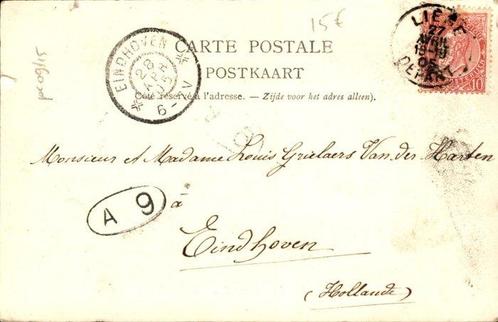 15€
pr09/15
EINDHOVEN
28
APR
6-V
CARTE POSTALE
POSTKAART
Côté réservé à l'adresse. — Zijde voor het adres alleen).
LIÈGE
27
AVRIL
18-19
DEPART
10
Monsieur et Madame Louis Grielaers Van der Harten
à
A 9
Eindhoven
(Hollande)